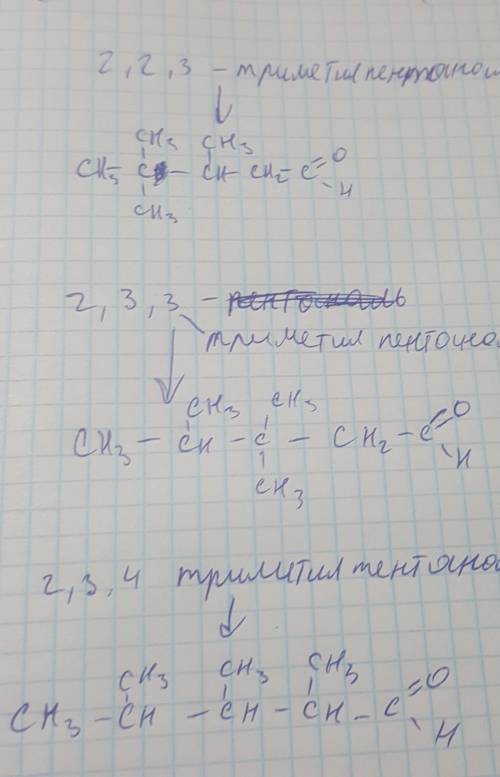 2, 2, 3 - триметилпентанал
CH3 CH3
CH3 - C - CH - CH2 - C =O
- H
CH3
2, 3, 3 -
триметил пентона
CH3 CH3
CH3 - CH - C - CH2 - C =O
- H
CH3
2, 3, 4 триметил пентана
CH3 CH3 CH3
CH3 - CH - CH - CH - C =O
- H